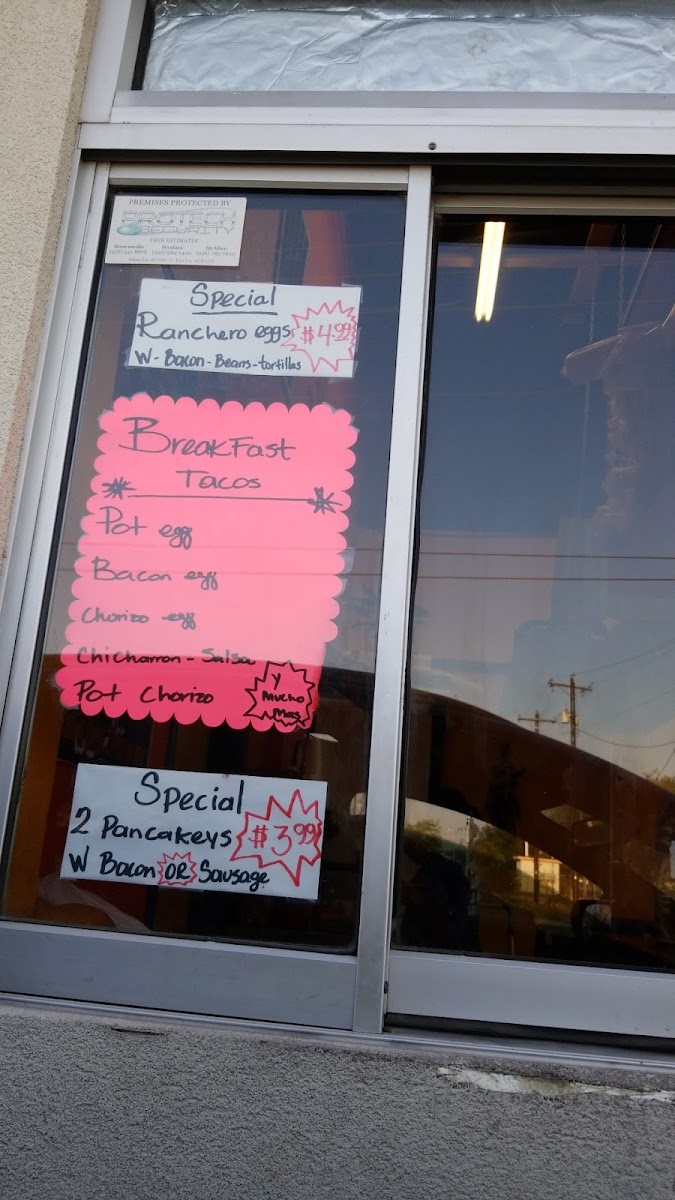 PREMISES PROTECTED BY
PROTECH
SECURITY
FREE ESTIMATES
Brownsville Weslaco McAllen
Special
Ranchero eggs $4.99
W - Bacon - Beans - tortillas
BreakFast
Tacos
Pot egg
Bacon egg
Chorizo egg
Chicharron - Salsa
Pot Chorizo
y
Mucho
Mas
Special
2 Pancakeys $3.99
W Bacon OR Sausage